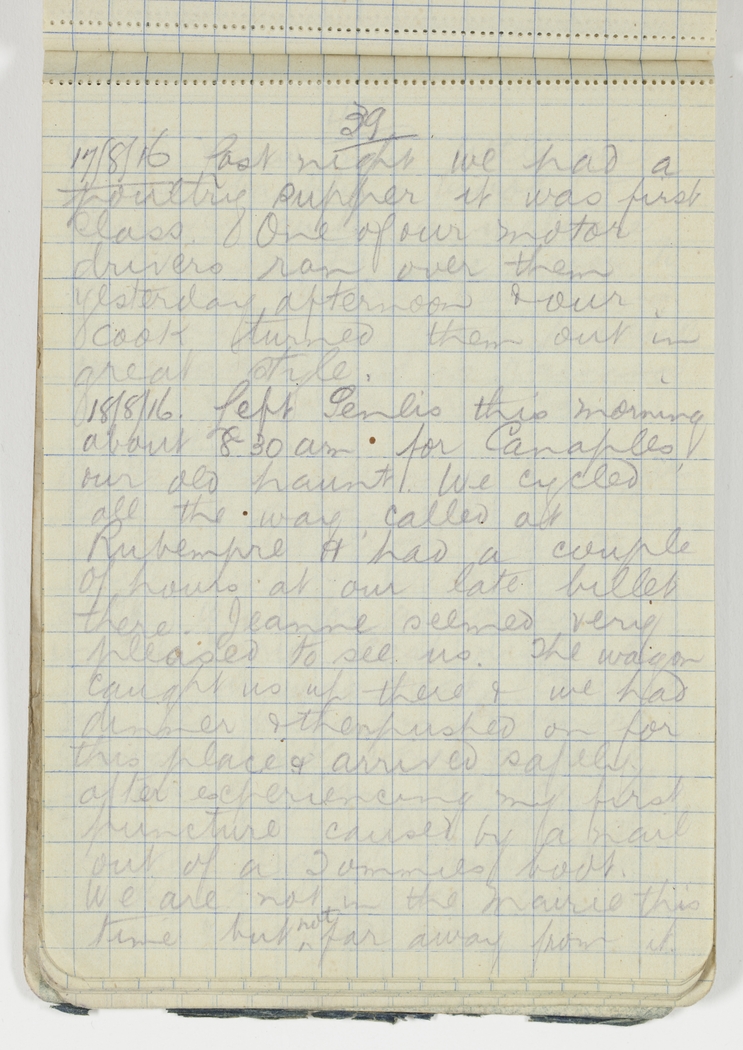 39
17/8/16 Last night we had a
poultry supper it was first
class. One of our motor
drivers ran over them
yesterday afternoon & our
cook turned them out in
great style.
18/8/16. Left Senlis this morning
about 8 30 am for Canaples
our old haunt. We cycled
all the way called at
Rubempre & had a couple
of hours at our late billet
there. Jeanne seemed very
pleased to see us. The wagon
caught us up there & we had
dinner & then pushed on for
this place & arrived safely.
after experiencing my first
puncture caused by a nail
out of a Tommies boot.
We are not in the Mairie this
time but not far away from it.